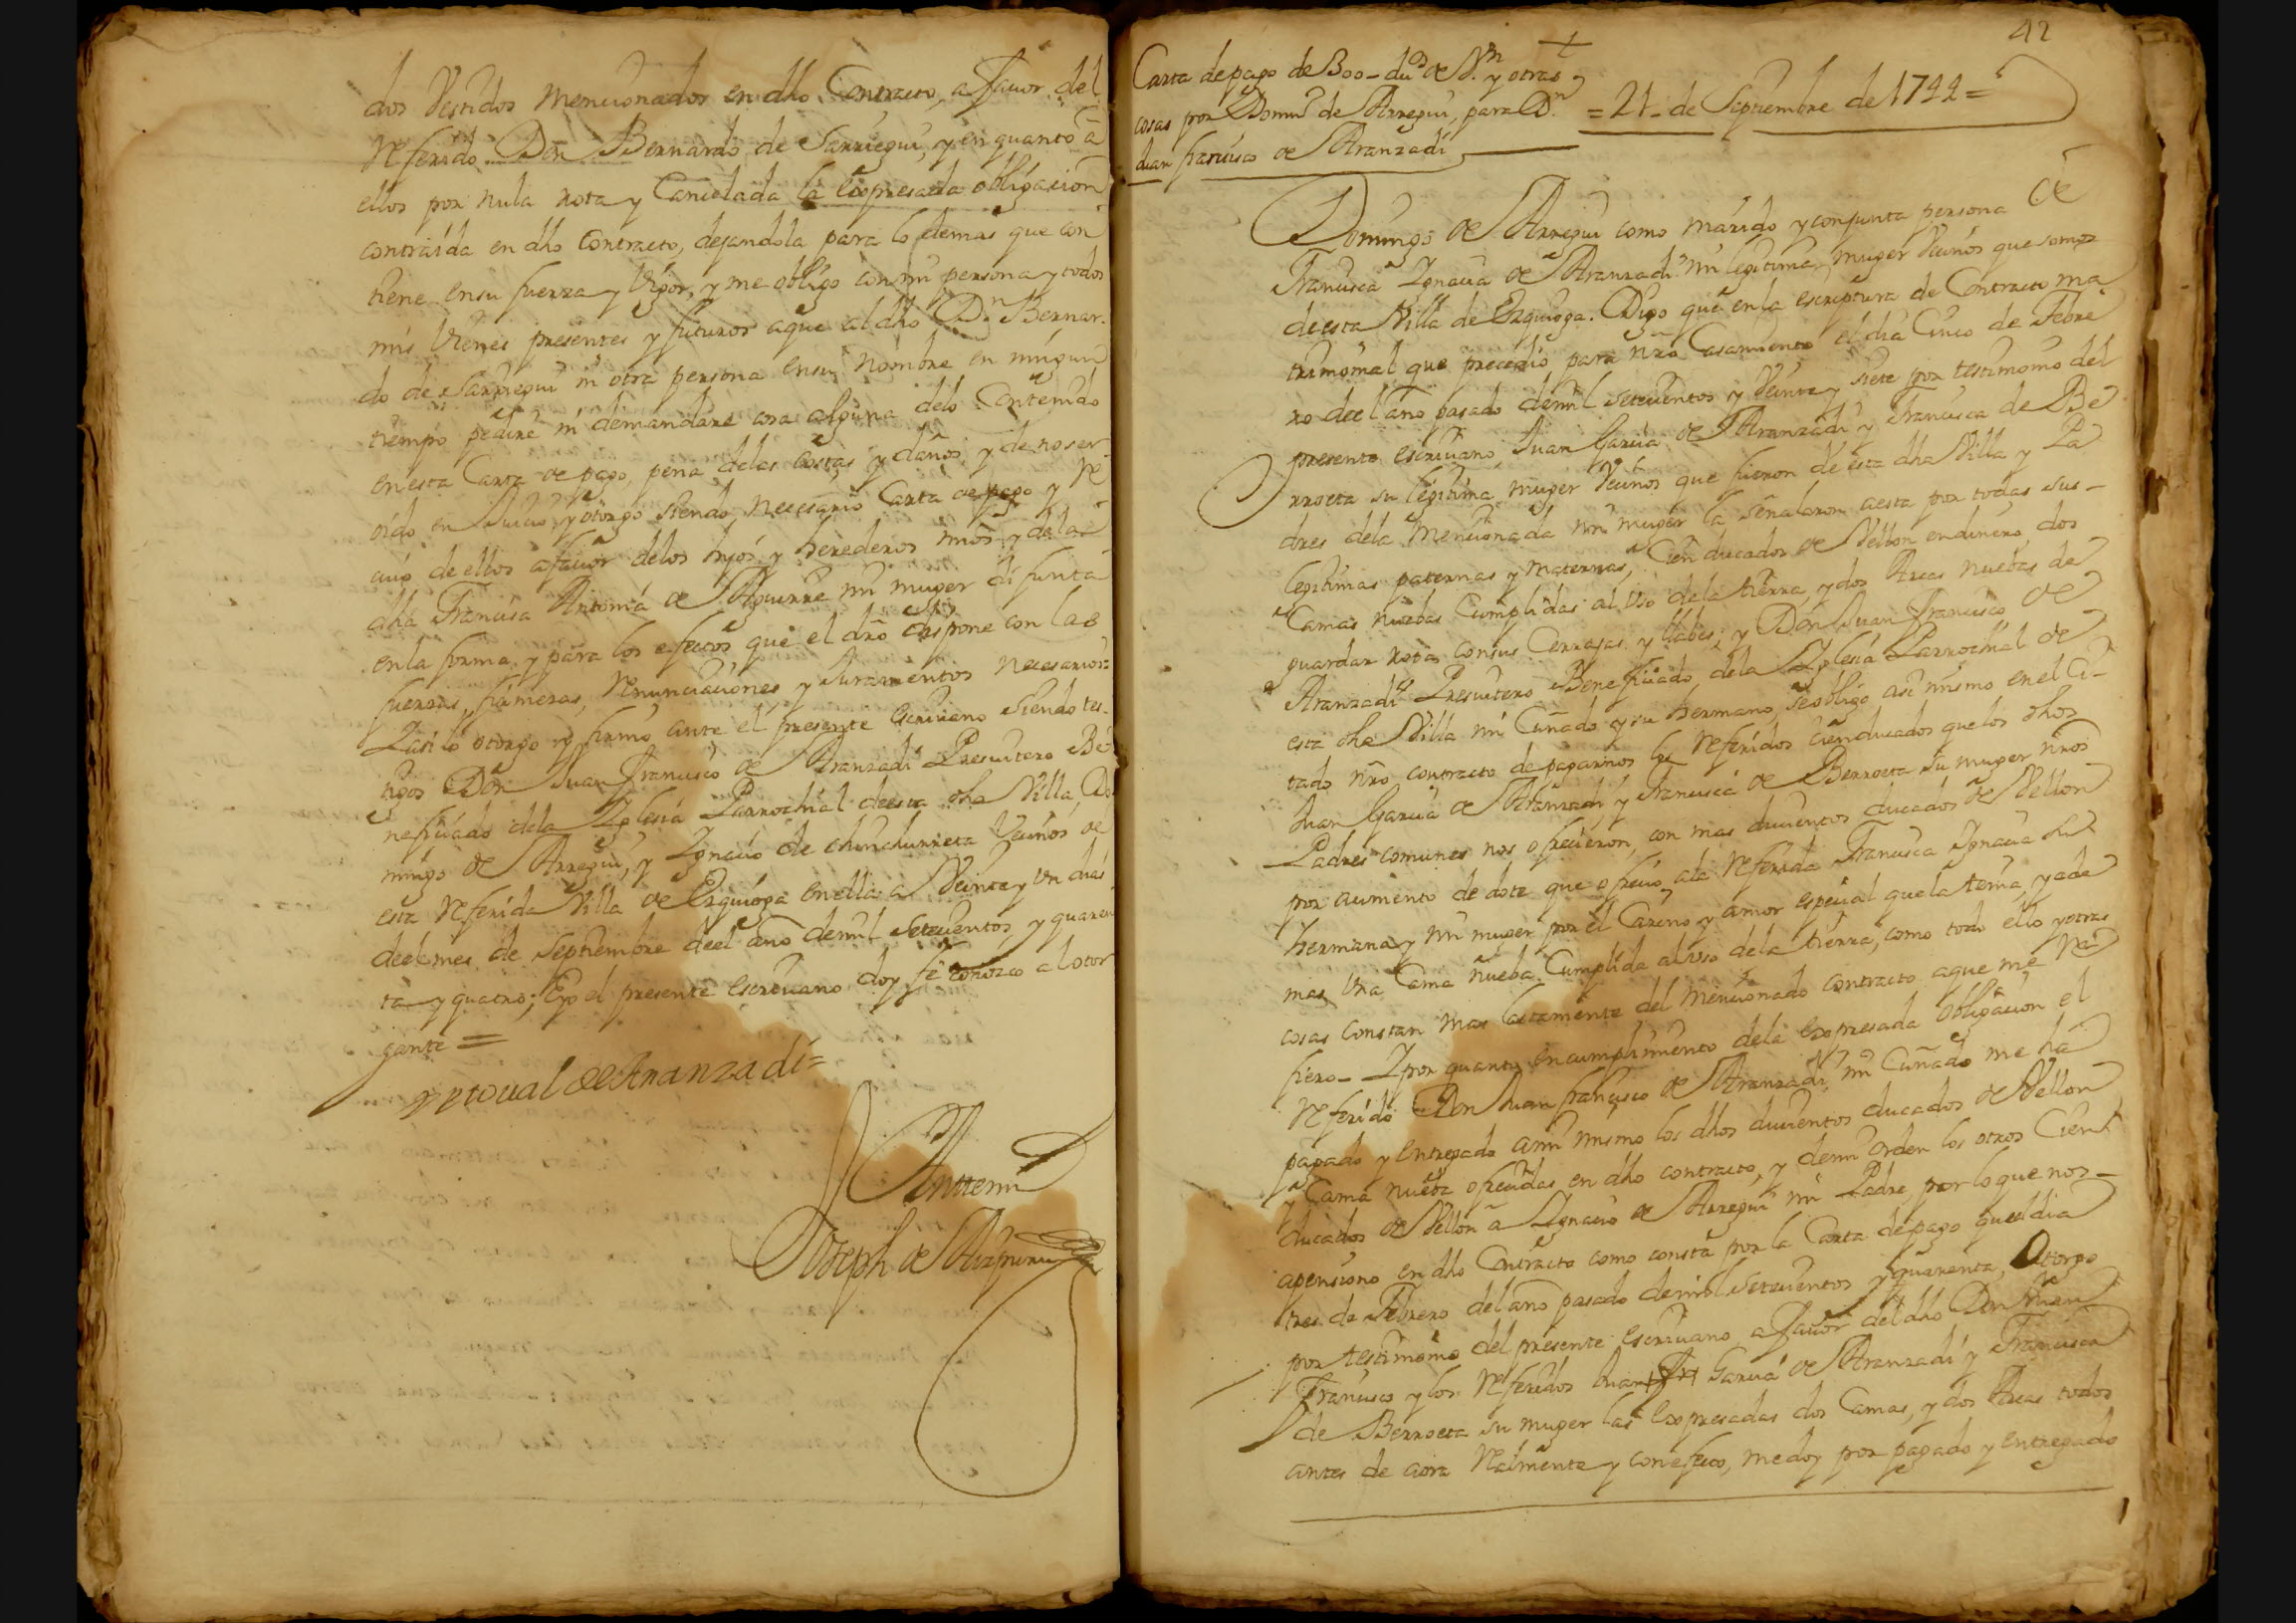 dos Vestidos mencionados en dho Contracto, a favor del
Referido Don Bernardo de Sarriegui, y en quanto â
ellos por nula rota y Cancelada la expresada obligacion
contraida en dho Contracto, dejandola para lo demas que con
tiene en su fuerza y Vigor, y me obligo con mi persona y todos
mis Vienes presentes y futuros aque al dho Dn Bernar-
do de Sarriegui ni otra persona en su nombre en ningun
tiempo pedire ni demandare cosa alguna delo Contenido
en esta Carta de pago, pena delas costas y daños y de no ser
oido en Juicio, y otorgo siendo necesario Carta de pago y Re
civo de ellos afavor delos hijos y herederos mios y dela
dha Francisca Antonia de Aguirre mi muger difunta
en la forma y para los efectos que el dro dispone con las
fuerzas, firmezas, Renunciaciones y Juramentos necesarios:
Y asi lo otorgo y firmo ante el presente escrivano siendo tes-
tigos Don Juan Francisco de Aranzadi Presvitero Be
neficiado dela Iglesia Parrochial deesta dha Villa, Do
mingo de Arregui, y Ignacio de chinchurreta Vecinos de
esta Referida Villa de Ezquioga en ella a Veinte y Un dias
deel mes de Septiembre deel año demil Setecientos, y quaren
ta y quatro; Eyo el presente escrivano doy fe conozco al otor
gante =
Xptoual de Aranzadi =
Antemi
Joseph de Aizpuru
42
Carta depago de 300 - dus de Vn y otras
cosas por Domo de Arregui, para Dn
Juan francisco de Aranzadi
= 21 - de Septiembre de 1744 =
Domingo de Arregui como marido y conjunta persona de
Francisca Ignacia de Aranzadi mi legitima muger Vecinos que somos
de esta Villa de Ezquioga. Digo que en la escriptura de Contracto ma
trimonial que precedio para nro Casamiento el dia Cinco de Febre
ro deel año pasado demil setecientos y Veinte y siete por testimonio del
presente escrivano, Juan Garcia de Aranzadi y Francisca de Be
rroeta su legitima muger Vecinos que fueron de esta dha Villa y Pa
dres dela Mencionada mi muger la señalaron aesta por todas sus -
legitimas paternas y maternas, Cien ducados de Vellon en dinero, dos
Camas nuebas Cumplidas al Uso dela tierra, y dos Arcas nuebas de
guardar ropa consus Cerrajas y llabes; y Don Juan Francisco de
Aranzadi Presvitero Beneficiado dela Iglesia Parrochial de
esta dha Villa mi Cuñado y su hermano, se obligo asi mismo en el Ci-
tado nro contracto de pagarnos los Referidos cien ducados que los dhos
Juan Garcia de Aranzadi, y Francisca de Berroeta su muger nros
Padres comunes nos ofrecieron, con mas ducientos ducados de Vellon
por aumento de dote que ofrecio ala Referida Francisca Ignacia Su
hermana y mi muger por el Cariño y amor especial que la tenia, y ade
mas Una Cama nueba Cumplida al Uso dela tierra, como todo ello y otras
cosas constan mas lactamente del mencionado contracto aque me Re
fiero - Y por quanto en cumplimiento dela expresada obligacion el
Referido Don Juan francisco de Aranzadi mi Cuñado me ha
pagado y entregado ami mismo los dhos ducientos ducados de Vellon
y Cama nueba ofrecidas en dho contracto, y demi orden los otros Cien
ducados de Vellon â Ignacio de Arregui mi Padre, por lo que nos -
apensiono en dho Contracto como consta por la Carta de pago que el dia
tres de Febrero del año pasado demil setecientos y quarenta, Otorgo
por testimonio del presente escrivano a favor del dho Don Juan
Francisco y los Referidos Juan Garcia de Aranzadi y Francisca
de Berroeta su muger las expresadas dos Camas, y dos Arcas todos
antes de aora Realmente y con efecto, me doy por pagado y entregado